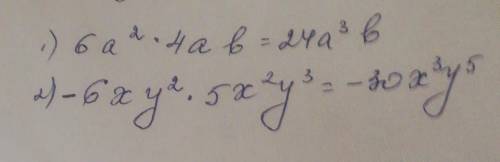 1) 6a² · 4ab = 24a³b
2) -6xy² · 5x²y³ = -30x³y⁵